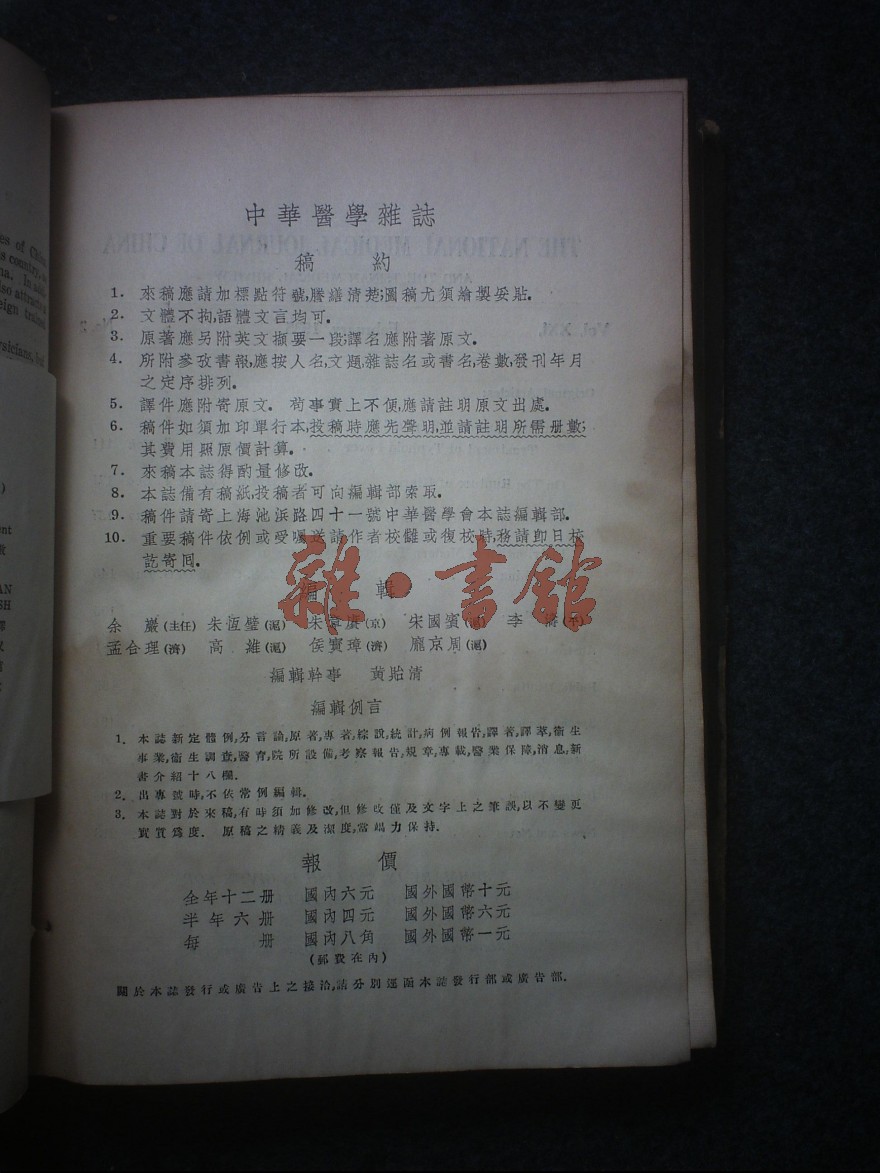 中華醫學雜誌
稿約
1. 來稿應請加標點符號,謄繕清楚;圖稿尤須繪製妥貼。
2. 文體不拘,語體文言均可。
3. 原著應另附英文撮要一段;譯名應附著原文。
4. 所附參攷書報,應按人名,文題,雜誌名或書名,卷數,發刊年月
之定序排列。
5. 譯件應附寄原文。 苟事實上不便,應請註明原文出處。
6. 稿件如須加印單行本,投稿時應先聲明,並請註明所需册數;
其費用照原價計算。
7. 來稿本誌得酌量修改。
8. 本誌備有稿紙,投稿者可向編輯部索取。
9. 稿件請寄上海池浜路四十一號中華醫學會本誌編輯部。
10. 重要稿件依例或受囑送請作者校讎或復校時,務請即日校
訖寄囘。
雜·書館
編輯
余巖(主任) 朱恆璧(滬) 朱章賡(京) 宋國賓(滬) 李濤(平)
孟合理(濟) 高維(滬) 侯寶璋(濟) 龐京周(滬)
編輯幹事 黄貽清
編輯例言
1. 本誌新定體例,分言論,原著,專著,綜說,統計,病例報告,譯著,譯萃,衞生
事業,衞生調查,醫育,院所設備,考察報告,規章,專載,醫業保障,消息,新
書介紹十八欄。
2. 出專號時,不依常例編輯。
3. 本誌對於來稿,有時須加修改,但修改僅及文字上之筆誤,以不變更
實質爲度. 原稿之精義及潔度,當竭力保持.
報價
全年十二册 國內六元 國外國幣十元
半年六册 國內四元 國外國幣六元
每册 國內八角 國外國幣一元
(郵費在內)
關於本誌發行或廣告上之接洽,請分別逕函本誌發行部或廣告部.